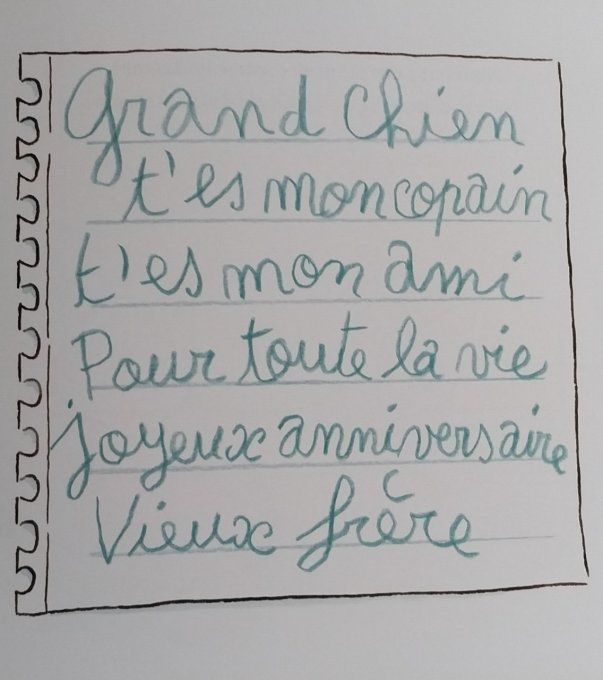 Grand Chien
t'es mon copain
t'es mon ami
Pour toute la vie
joyeux anniversaire
Vieux frère